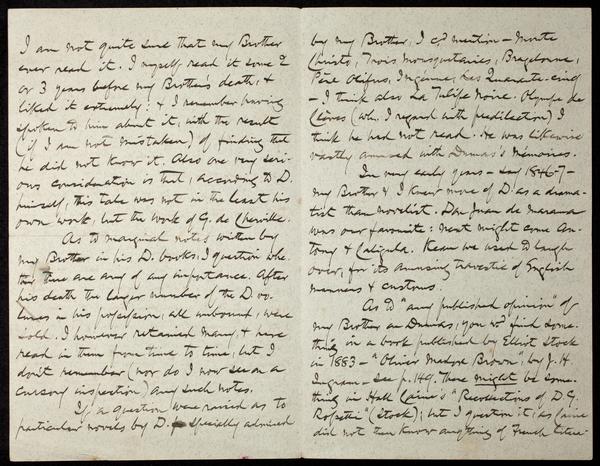 I am not quite sure that my Brother
ever read it. I myself read it some 2
or 3 years before my Brother's death, &
liked it extremely: & I remember having
spoken to him about it, with the result
(if I am not mistaken) of finding that
he did not know it. Also one very seri-
ous consideration is that, according to D.
himself, this tale was not in the least his
own work, but the work of G. de Cherville.
As to marginal notes written by
my Brother in his D. books: I question whe-
ther there are any of any importance. After
his death the larger number of the D. vo-
lumes in his possession, all unbound, were
sold. I however retained many, & have
read in them from time to time, but I
don't remember (nor do I now see on a
cursory inspection) any such notes.
If a question were raised as to
particular novels by D. specially admired
by my Brother, I cd mention – Monte
Christo, Trois Mousquetaires, Bragelonne,
Père Olifus, Ingénue, Les Quarante-cinq
– I think also La Tulipe Noire. Olympe de
Clèves (wh. I regard with predilection) I
think he had not read. He was likewise
vastly amused with Dumas's Mémoires.
In very early years – say 1846-7 –
my Brother & I knew more of D. as a drama-
tist than novelist. Don Juan de Marana
was our favourite: next might come An-
tony & Caligula. Kean we used to laugh
over, for its amusing travestie of English
manners & customs.
As to "any published opinion" of
my Brother on Dumas, you wd find some-
thing in a book published by Elliot Stock
in 1883 – "Oliver Madox Brown" by J. H.
Ingram – see p. 149. There might be some-
thing in Hall Caine's "Recollections of D. G.
Rossetti" (Stock); but I question it, as Caine
did not then know anything of French litera-